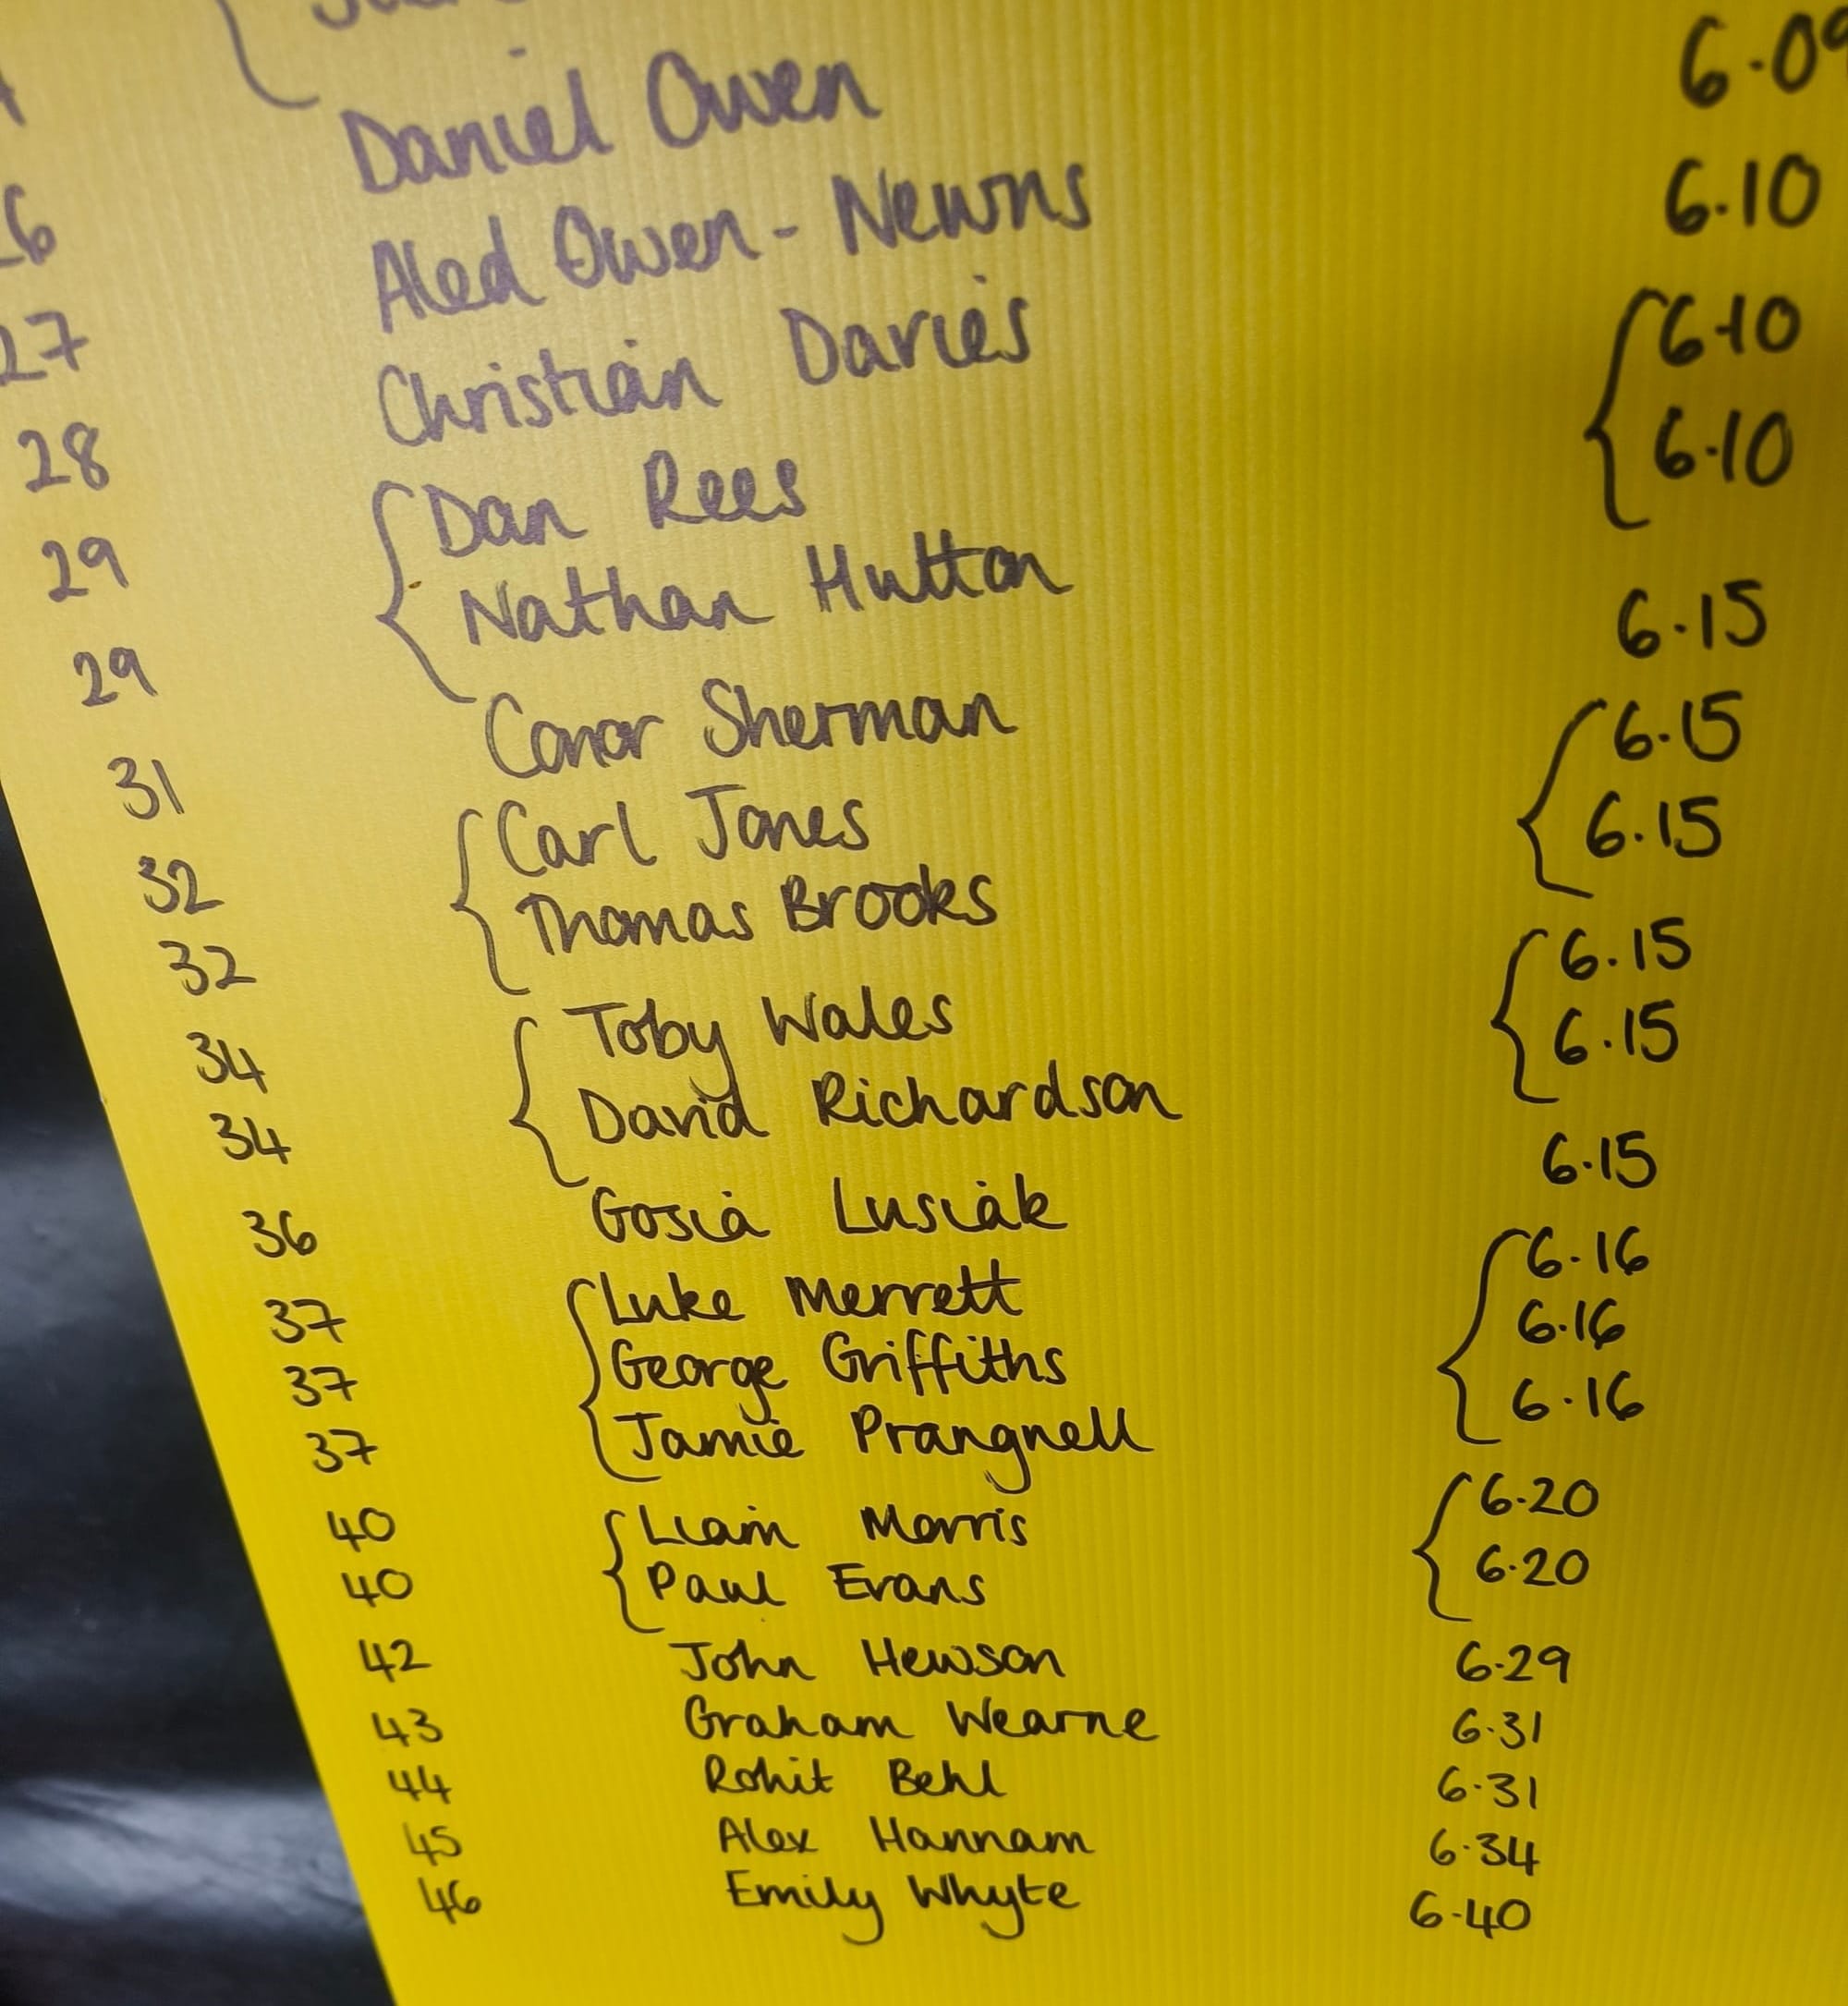 26 Daniel Owen
27 Aled Owen-Newns 6.09
28 Christian Davies 6.10
29 Dan Rees 6.10
29 Nathan Hutton 6.10
31 Conor Sherman 6.15
32 Carl Jones 6.15
32 Thomas Brooks 6.15
34 Toby Wales 6.15
34 David Richardson 6.15
36 Gosia Lusiak 6.15
37 Luke Merrett 6.16
37 George Griffiths 6.16
37 Jamie Prangnell 6.16
40 Liam Morris 6.20
40 Paul Evans 6.20
42 John Hewson 6.29
43 Graham Wearne 6.31
44 Rohit Behl 6.31
45 Alex Hannam 6.34
46 Emily Whyte 6.40